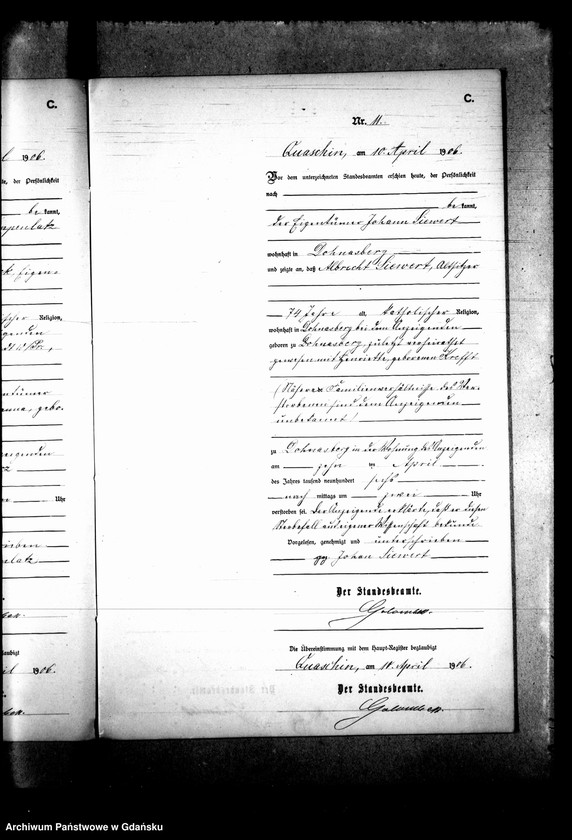 C.
l 1906.
te, der Persönlichkeit
be kannt,
Religion,
Uhr
il 1906.
C.
Nr. 11.
Quaschin, am 10. April 1906.
Vor dem unterzeichneten Standesbeamten erschien heute, der Persönlichkeit
nach
be kannt,
der Eigentümer Johann Siewert
wohnhaft in Dohnasberg
und zeigte an, daß Albrecht Siewert, Altsitzer
74 Jahre alt, katholischer Religion,
wohnhaft in Dohnasberg bei dem Anzeigenden
geboren zu Dohnasberg, zuletzt verheiratet
gewesen mit Henriette, geborenen Krefft
(Nähere Familienverhältnisse des Ver-
storbenen sind dem Anzeigenden
unbekannt)
zu Dohnasberg in der Wohnung des Anzeigenden
am zehn ten April
des Jahres tausend neunhundert sechs
nach mittags um zwei Uhr
verstorben sei. Der Anzeigende erklärte, daß er diesen
Sterbefall aus eigener Wissenschaft bekunde.
Vorgelesen, genehmigt und unterschrieben
gez. Johan Siewert
Der Standesbeamte.
Die Übereinstimmung mit dem Haupt-Register beglaubigt
Quaschin, am 10. April 1906.
Der Standesbeamte.
Archiwum Państwowe w Gdańsku